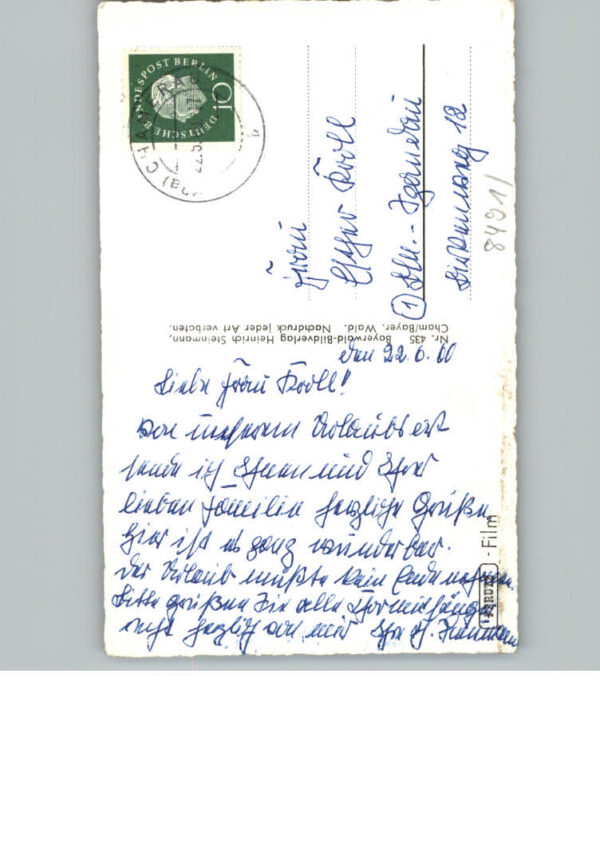 DEUTSCHE BUNDESPOST BERLIN
10
22.6.
Frau
Kroll
1 Bln.-Spandau
12
84931
Nr. 435 Bayerwald-Bildverlag Heinrich Steinmann,
Cham/Bayer. Wald. Nachdruck jeder Art verboten.
den 22.6.60
Liebe Frau Kroll!
Von unserem Urlaubsort
sende ich Ihnen und Ihrer
lieben Familie herzliche Grüße
hier ist es ganz wunderbar.
Der Urlaub müßte kein Ende nehmen.
Bitte grüßen Sie alle
recht herzlich von mir Ihr
-Film